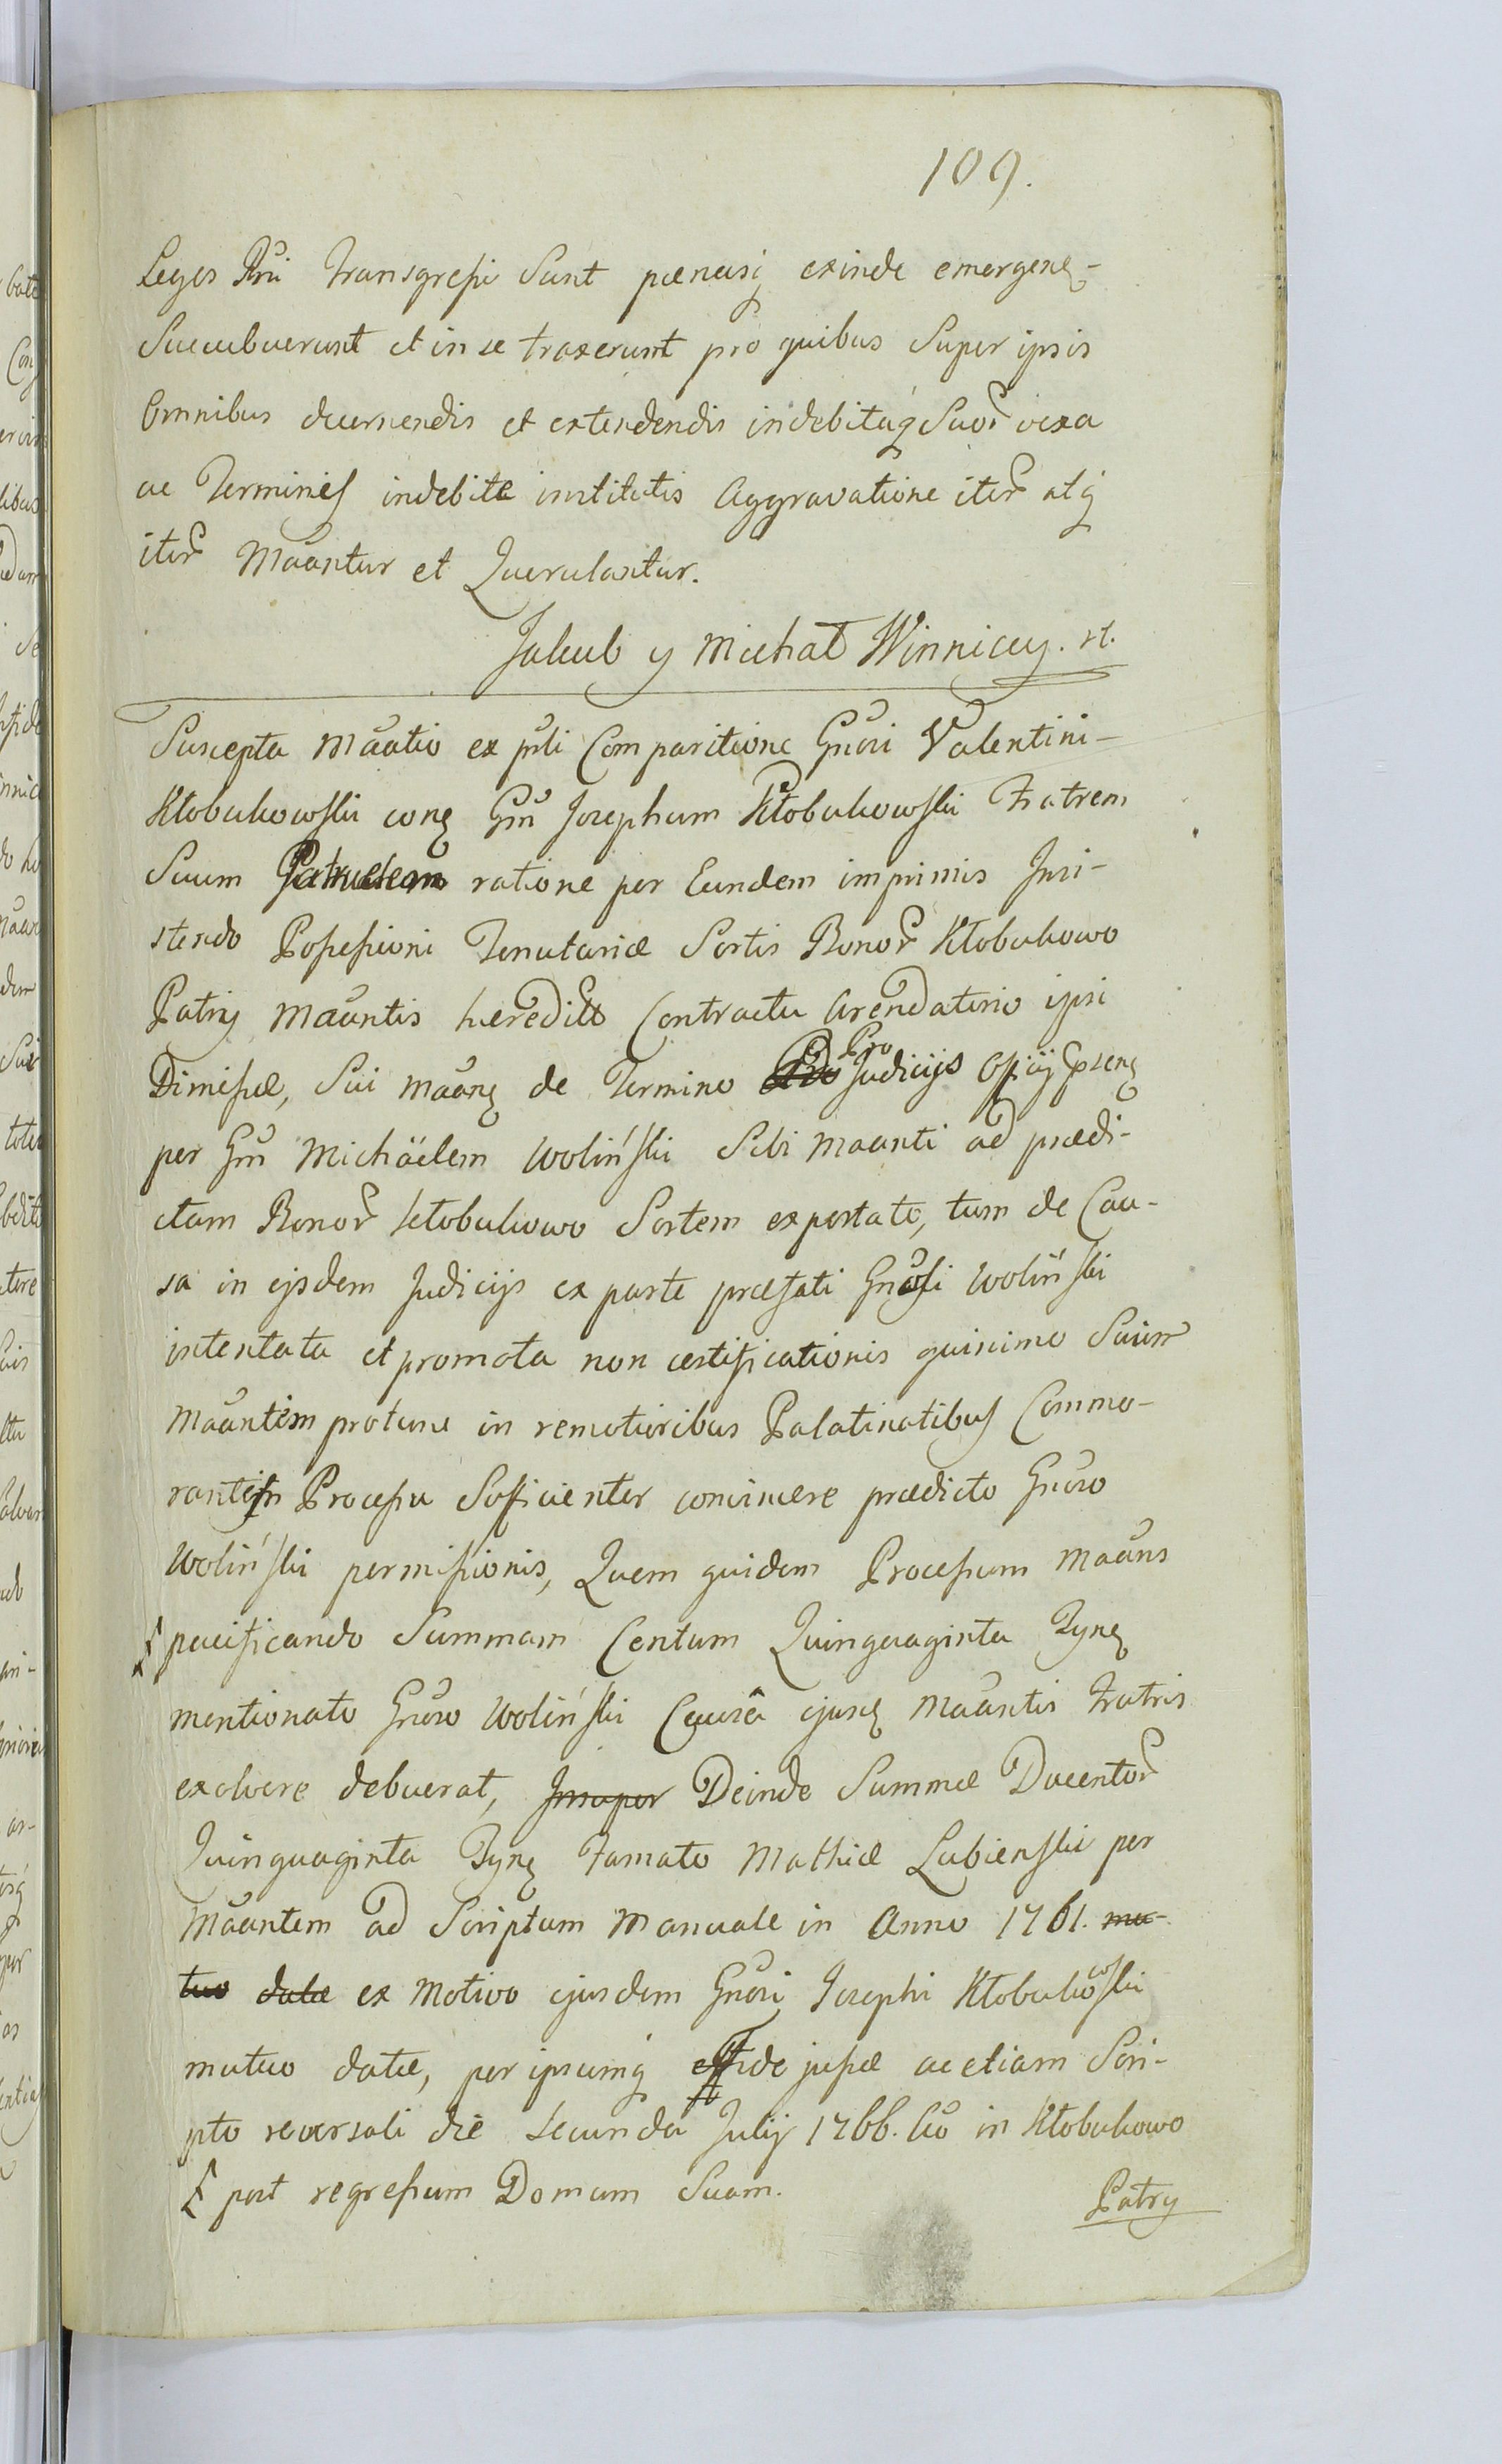 109.
Leges Pñi Transgressi Sunt pœnasq exinde emergenę-
Succubuerunt et in se traxerunt pro quibus Super ipsis
Omnibus decernendis et extendendis indebitáq Suor̃ vexa
ac Terminis indebite institutis Aggravatione iter̃ atq
iter̃ Mãantur et Querulantur.
Jakub y Michał Winniccy. rt.
Suscepta Mãatio ex p̃sli Comparitione Gñosi Valentini-
Kłobukowski conę Gñ Josephum Kłobukowski Fratrem
Suum Patruelem ratione per Eundem imprimis Insi-
stendo Possessioni Tenutariæ Sortis Bonor̃ Kłobukowo
Patry Mãantis hæredit̃ Contractu Arendatorio ipsi
Dimissæ, Sui Mãanę de Termino Pro Judicijs Offcij Cpsenę
per Gñ Michäelem Woliński Sibi Mãanti ad prædi-
ctam Bonor̃ Kłobukowo Sortem exportato, tum de Cau-
sa in ejsdem Judicijs ex parte præfati Gñosi Woliński
intentata et promota non certificationis quinimo Suũm
Mãantem protunc in remotioribus Palatinatibus Commo-
rantem Processu Sufficienter convincere prædicto Gñoso
Woliński permissionis, Quem quidem Processum Mãans
pacificando Summam Centum Quinquaginta Tynę
mentionato Gñoso Woliński Causâ ejusę Mãantis Fratris
exolvere debuerat, Insuper Deinde Summæ Ducentor̃
Quinquaginta Tynę Famato Mathiæ Lubienski per
Mãantem ad Scriptum Manuale in Anno 1761. mu-
tuo datæ ex Motivo ejusdem Gñosi Josephi Kłobukowski
mutuo datæ, per ipsumq fide jussæ ac etiam Scri-
pto reversali die Secunda Julij 1766. in Kłobukowo
post regressum Domum Suam.
Patry